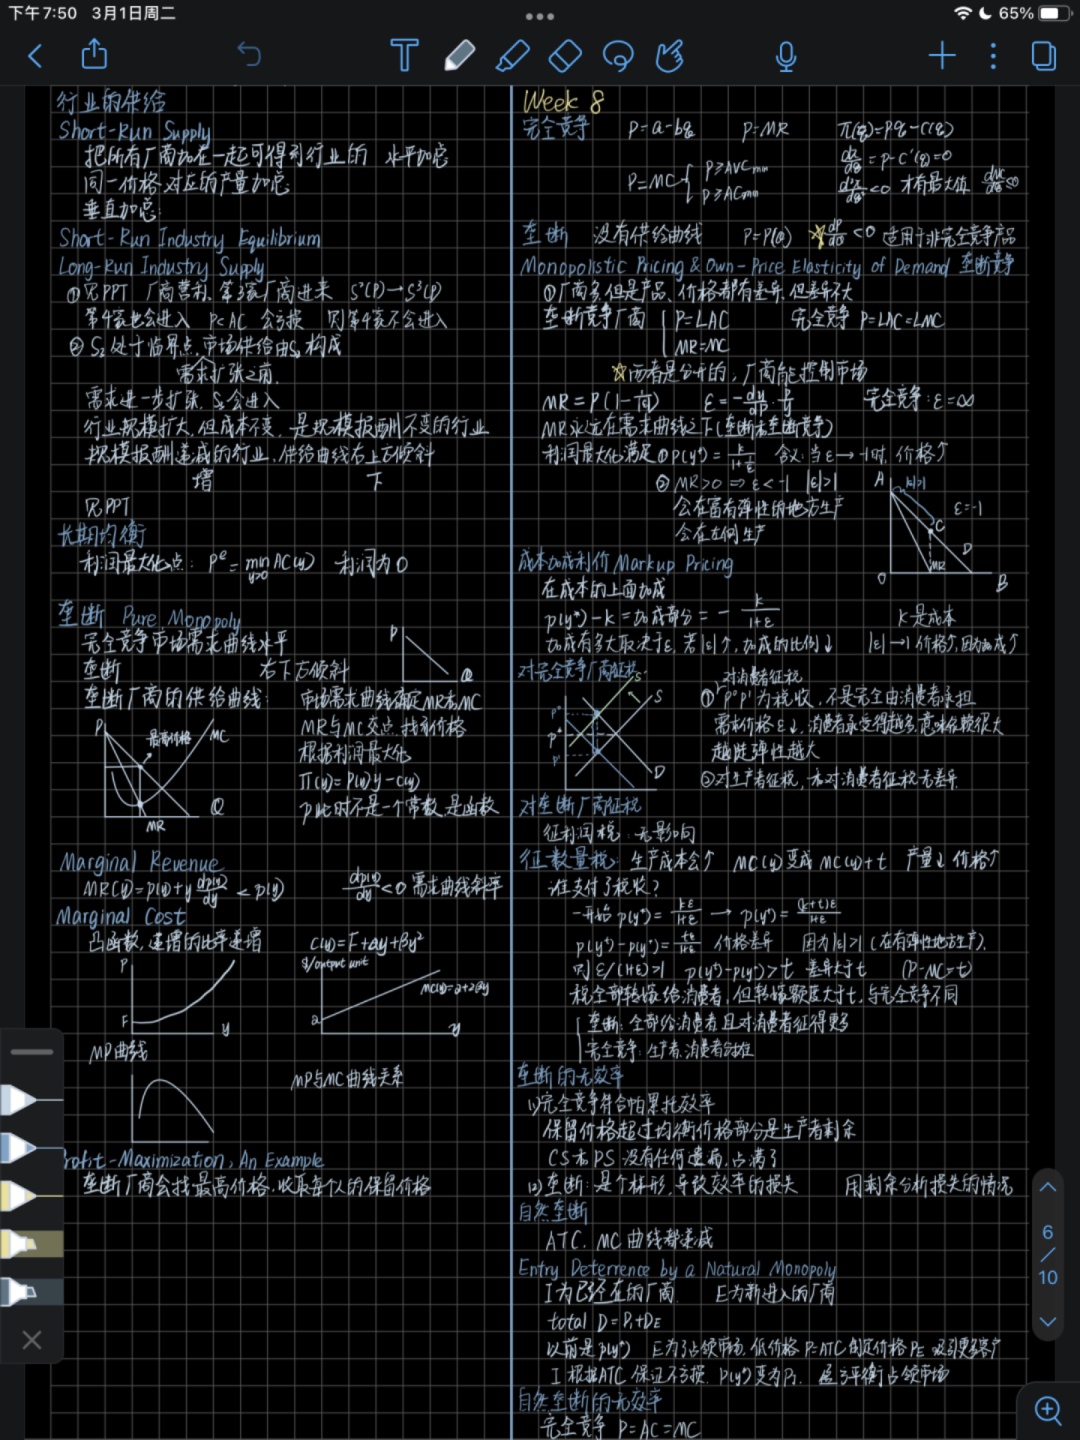 下午7:50 3月1日周二
65%
行业的供给
Short-Run Supply
把所有厂商加在一起可得到行业的 水平加总
同一价格对应的产量加总
垂直加总:
Short-Run Industry Equilibrium
Long-Run Industry Supply
① 见PPT 厂商营利、第3家厂商进来 S²(P)→S³(P)
第4家也会进入 P<AC 会亏损 则第4家不会进入
② S₂处于临界点,市场供给由S₂构成
需求扩张之前.
需求进一步扩张, S₃会进入
行业规模扩大,但成本不变,是规模报酬不变的行业
规模报酬递减的行业,供给曲线右上方倾斜
增 下
见PPT
长期均衡
利润最大化点: Pᵉ = min AC(y) 利润为0
y>0
垄断 Pure Monopoly
完全竞争市场需求曲线水平
垄断 右下方倾斜
P
Q
垄断厂商的供给曲线: 市场需求曲线确定MR和MC
MR与MC交点,找到价格
根据利润最大化
π(y)=p(y)y-c(y)
p此时不是一个常数,是函数
P
最高价格
MC
Q
MR
Marginal Revenue
MR(y)=p(y)+y dp(y)/dy < p(y) dp(y)/dy<0 需求曲线斜率
Marginal Cost
凸函数,递增的比率递增 C(y)=F+αy+βy²
P
F
y
$/output unit
MC(y)=a+2βy
a
y
MP曲线
MP与MC曲线关系
Profit-Maximization, An Example
垄断厂商会找最高价格,收取每个人的保留价格
Week 8
完全竞争 P=a-bq P=MR π(q)=Pq-C(q)
P=MC { P≥AVCmin dπ/dq=P-C'(q)=0
P≥ACmin d²π/dq²<0 才有最大值
垄断 没有供给曲线 P=P(Q) ☆ dP/dQ<0 适用于非完全竞争产品
Monopolistic Pricing & Own-Price Elasticity of Demand 垄断竞争
①厂商多,但是产品、价格都有差异,但差异不大
垄断竞争厂商 { P=LAC 完全竞争 P=LAC=LMC
MR=MC
☆两者是分开的,厂商能控制市场
完全竞争:ε=∞
MR永远在需求曲线之下(垄断和垄断竞争)
利润最大化满足①P(y*)=k/1+ε 含义:当ε→-1时,价格↑
②MR>0 ⇒ ε<-1 |ε|>1
会在富有弹性的地方生产
会在左侧生产
A
|ε|>1
C
ε=-1
D
O
MR
B
成本加成利价 Markup Pricing
在成本的上面加成
p(y*)-k=加成部分=- k/1+ε k是成本
加成有多大取决于ε,若|ε|↑,加成的比例↓ |ε|→1 价格↑,因为加成↑
对完全竞争厂商征税
对消费者征税
S'
S
D
需求价格ε↓,消费者承受得越多,意味依赖很大
越陡弹性越大
②对生产者征税,和对消费者征税无差异
对垄断厂商征税
征利润税:无影响
征数量税:生产成本会↑ MC(y)变成MC(y)+t 产量↓ 价格↑
谁支付了税收?
一开始 p(y*)=kε/1+ε → p(yᵗ)=(k+t)ε/1+ε
p(yᵗ)-p(y*)=tε/1+ε 价格差异 因为|ε|>1(在有弹性地方生产).
则 ε/(1+ε)>1 p(yᵗ)-p(y*)>t 差异大于t (P-MC=t)
税全部转嫁给消费者,但转嫁额度大于t,与完全竞争不同
垄断:全部给消费者且对消费者征得更多
完全竞争:生产者,消费者分担
垄断的无效率
(1)完全竞争符合帕累托效率
保留价格超过均衡价格部分是生产者剩余
CS和PS 没有任何遗漏,占满了
(2)垄断:是个梯形,导致效率的损失 用剩余分析损失的情况
自然垄断
ATC、MC曲线都递减
Entry Deterrence by a Natural Monopoly
I为已经在的厂商 E为新进入的厂商
total D=Dᵢ+DE
以前是p(y*) E为了占领市场,低价格 P=ATC 制定价格PE 吸引更多客户
I根据ATC 保证不亏损, p(y*)变为Pᵢ 盈亏平衡占领市场
自然垄断的无效率
完全竞争 P=AC=MC
6
/
10